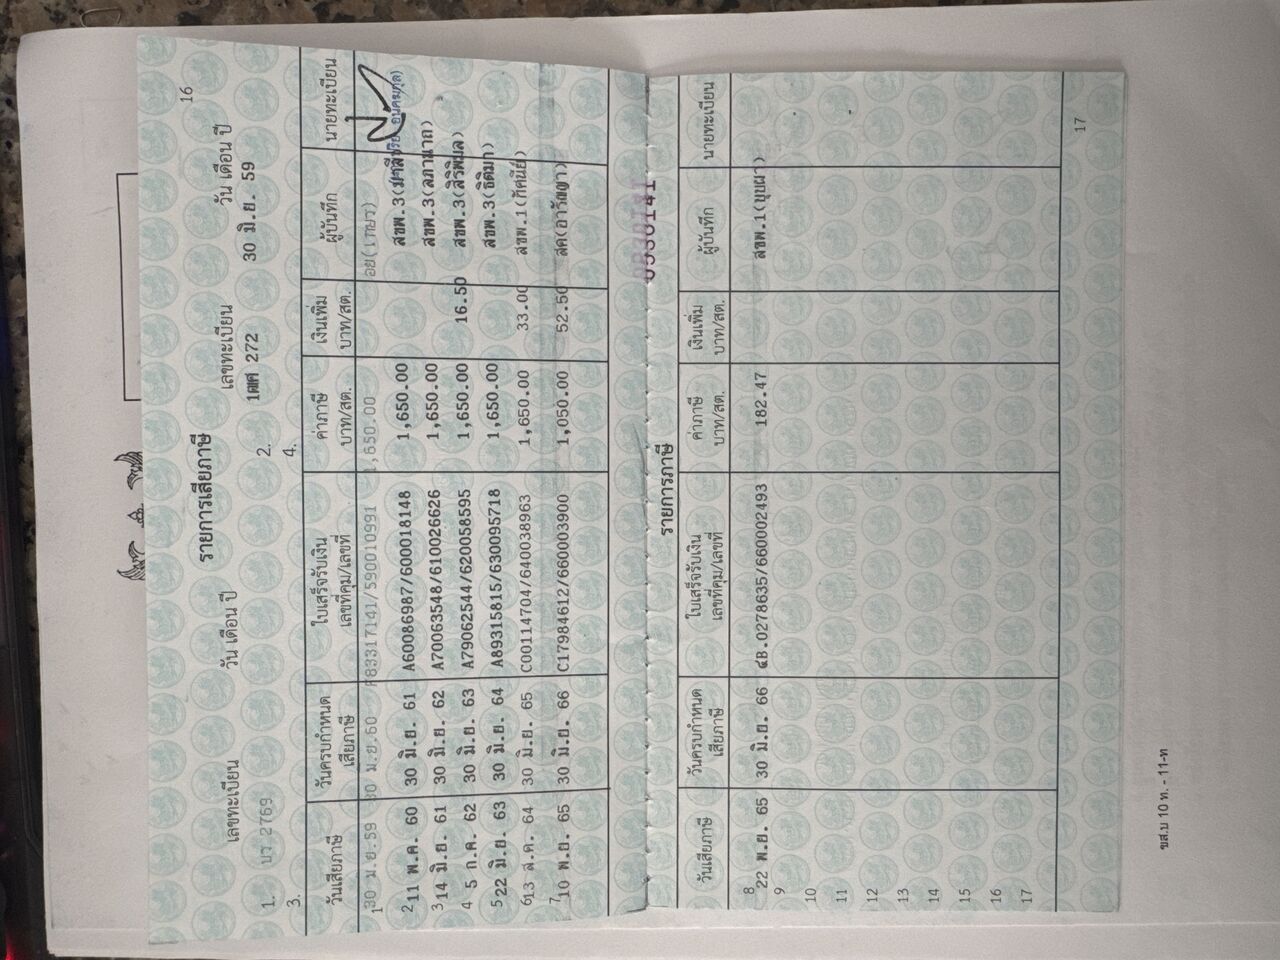 16
รายการเสียภาษี
เลขทะเบียน วัน เดือน ปี เลขทะเบียน วัน เดือน ปี
1. บว 2769 2. 272 30 มิ.ย. 59
3. 4.
วันเสียภาษี วันครบกำหนดเสียภาษี ใบเสร็จรับเงิน เลขที่คุม/เลขที่ ค่าภาษี บาท/สต. เงินเพิ่ม บาท/สต. ผู้บันทึก นายทะเบียน
1 30 ม.ย.59 30 ม.ย.60 83317141/590010991 1,650.00
2 11 พ.ค. 60 30 มิ.ย. 61 A60086987/600018148 1,650.00 สขพ.3
3 14 มิ.ย. 61 30 มิ.ย. 62 A70063548/610026626 1,650.00 สขพ.3(ลภานาถ)
4 5 ก.ค. 62 30 มิ.ย. 63 A79062544/620058595 1,650.00 16.50 สขพ.3(สิริพิมล)
5 22 มิ.ย. 63 30 มิ.ย. 64 A89315815/630095718 1,650.00 สขพ.3(ธิติมา)
6 13 ส.ค. 64 30 มิ.ย. 65 C00114704/640038963 1,650.00 33.00 สขพ.1(ทัศนีย์)
7 10 พ.ย. 65 30 มิ.ย. 66 C17984612/660003900 1,050.00 52.50 สค(อารัญญา)
รายการภาษี
วันเสียภาษี วันครบกำหนดเสียภาษี ใบเสร็จรับเงิน เลขที่คุม/เลขที่ ค่าภาษี บาท/สต. เงินเพิ่ม บาท/สต. ผู้บันทึก นายทะเบียน
8 22 พ.ย. 65 30 มิ.ย. 66 .0278635/660002493 182.47 สขพ.1(บุบผา)
9
10
11
12
13
14
15
16
17
17
ขส.บ 10 ท. - 11-ท